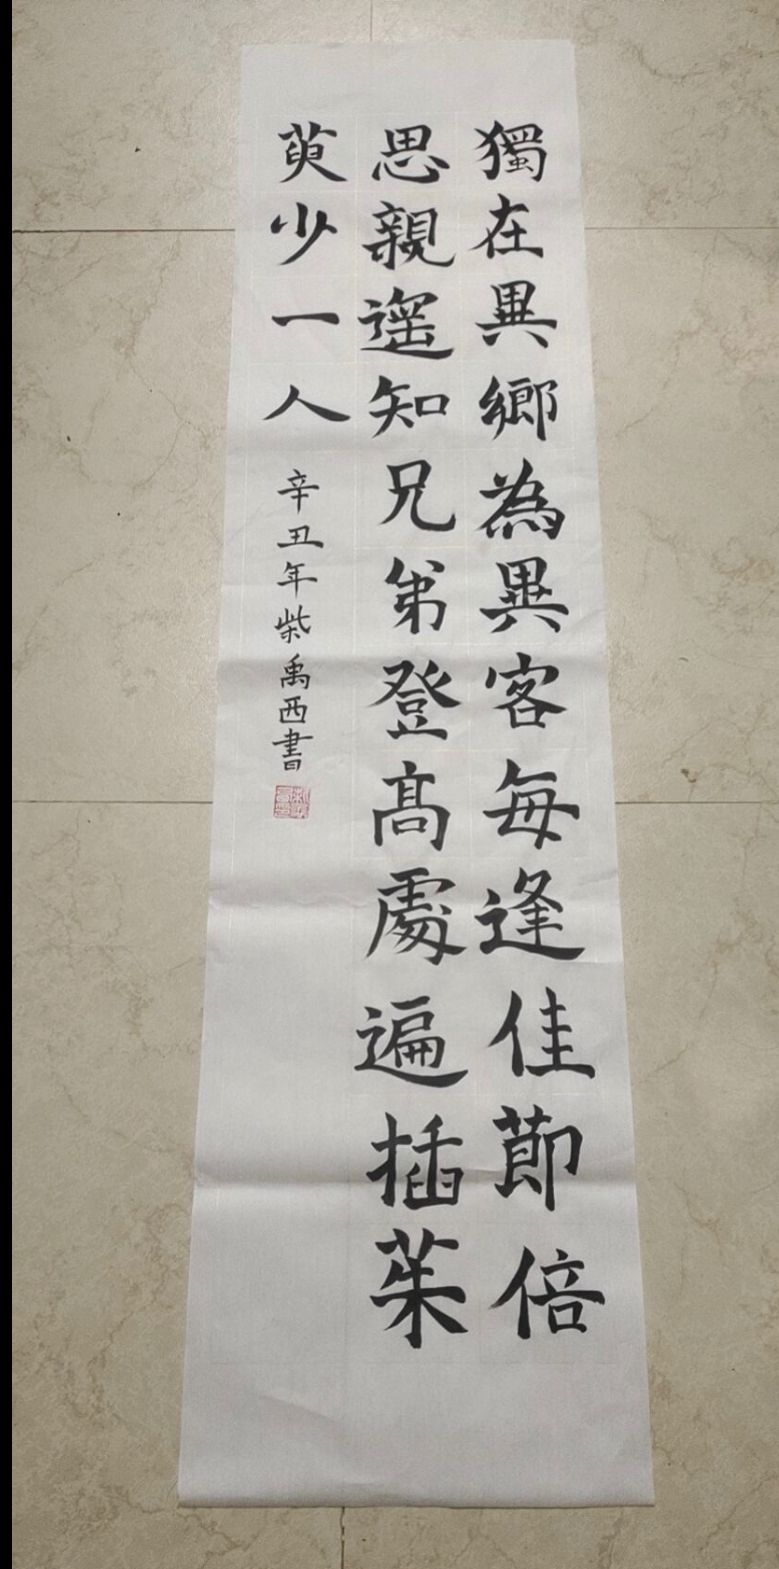 獨在異鄉為異客每逢佳節倍
思親遥知兄弟登高處遍插茱
萸少一人
辛丑年柴禹西書